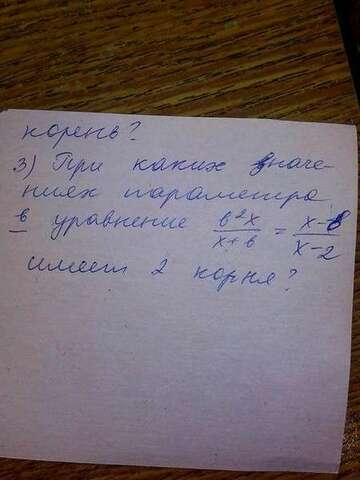 корень?
3) При каких значе-
ниях параметра
в уравнение в²x/x+в = x-в/x-2
имеет 2 корня?